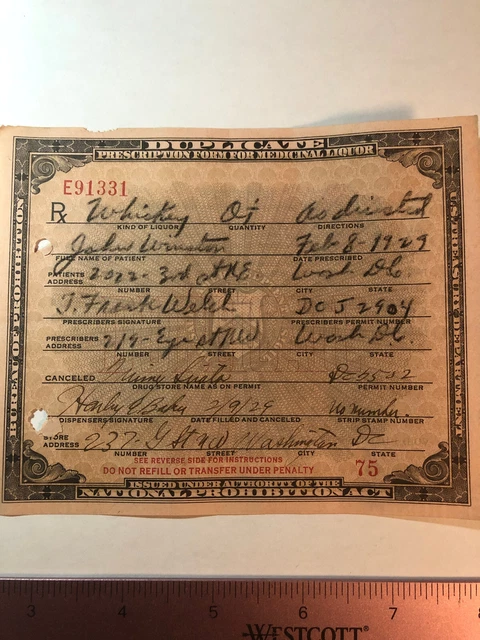 DUPLICATE
PRESCRIPTION FORM FOR MEDICINAL LIQUOR
BUREAU OF PROHIBITION
U.S. TREASURY DEPARTMENT
E91331
Rx Whiskey As directed
KIND OF LIQUOR QUANTITY DIRECTIONS
John Winston Feb 8-1929
FULL NAME OF PATIENT DATE PRESCRIBED
PATIENTS ADDRESS 2022- 3rd st NE Wash D.C.
NUMBER STREET CITY STATE
T. Frank Welch DC J 2904
PRESCRIBERS SIGNATURE PRESCRIBERS PERMIT NUMBER
PRESCRIBERS ADDRESS st NW Wash D.C.
NUMBER STREET CITY STATE
CANCELED
DRUG STORE NAME AS ON PERMIT PERMIT NUMBER
2/9/29 No number.
DISPENSERS SIGNATURE DATE FILLED AND CANCELED STRIP STAMP NUMBER
STORE ADDRESS Washington DC
NUMBER STREET CITY STATE
SEE REVERSE SIDE FOR INSTRUCTIONS
DO NOT REFILL OR TRANSFER UNDER PENALTY
75
ISSUED UNDER AUTHORITY OF THE
NATIONAL PROHIBITION ACT
3 4 5 6 7 8
WESTCOTT®